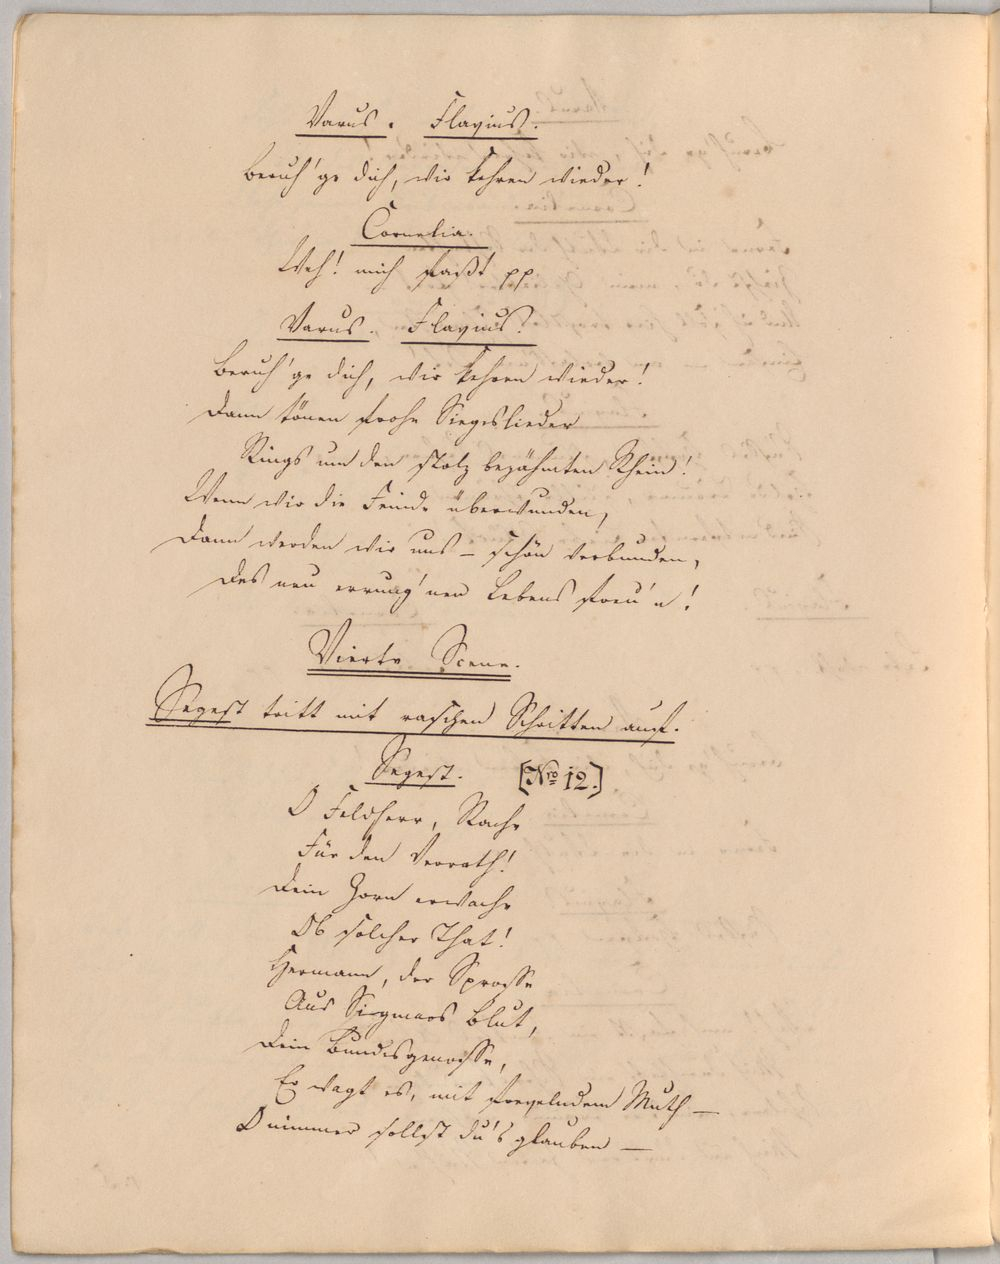 Varus. Flavius.
Beruh'ge dich, wir kehren wieder!
Cornelia.
Weh! mich faßt pp
Varus. Flavius.
Beruh'ge dich, wir kehren wieder!
Dann tönen frohe Siegslieder
Rings um den stolz bezähmten Rhein!
Wenn wir die Feinde überwunden,
Dann werden wir uns – schön verbunden,
Des neu errung'nen Lebens freu'n!
Vierte Scene.
Segest tritt mit raschen Schritten auf.
Segest. [Nro 12.]
O Feldherr, Rache
Für den Verrath!
Dein Zorn erwache
Ob solcher That!
Hermann, der Sprosse
Aus Siegmars Blut,
Dein Bundesgenosse,
Er wagt es, mit frevelndem Muth –
O nimmer sollst du's glauben –